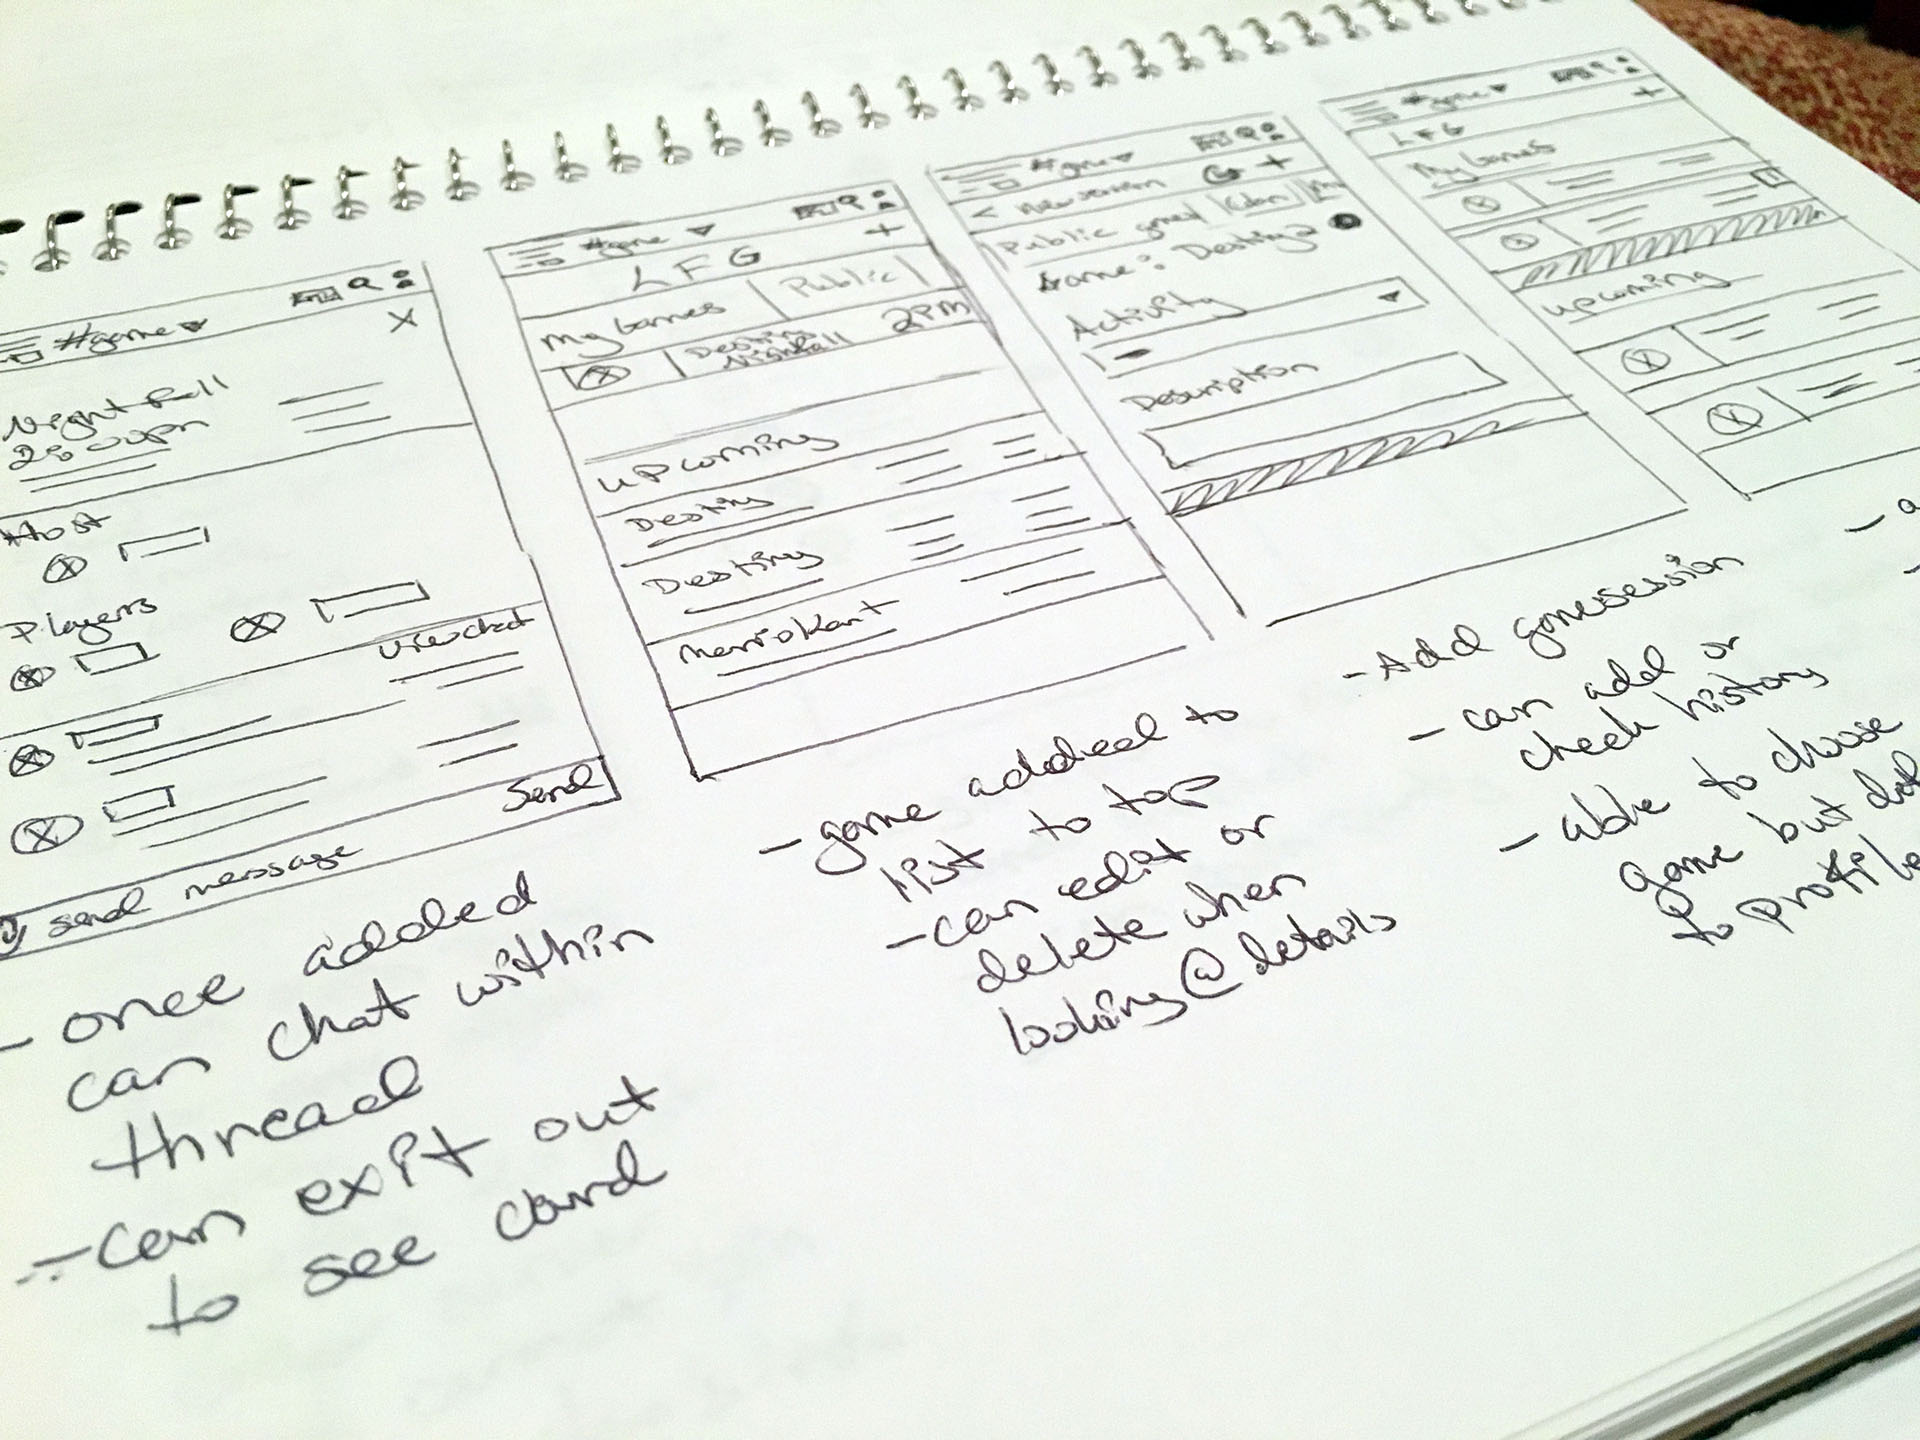 #game
X
Nightfall
2:00pm
Host
Players
view chat
Send
send message
- once added
can chat within
thread
- can exit out
to see card
#game
+
LFG
My Games
Public
Destiny
Nightfall
2PM
upcoming
Destiny
Destiny
Mariokart
- game added to
list to top
- can edit or
delete when
looking @ details
#game
< New session
+
Public
Clan
Game: Destiny 2
Activity
Description
- Add gamesession
- can add or
check history
- able to choose
game but
to profile
#game
+
LFG
My Games
upcoming